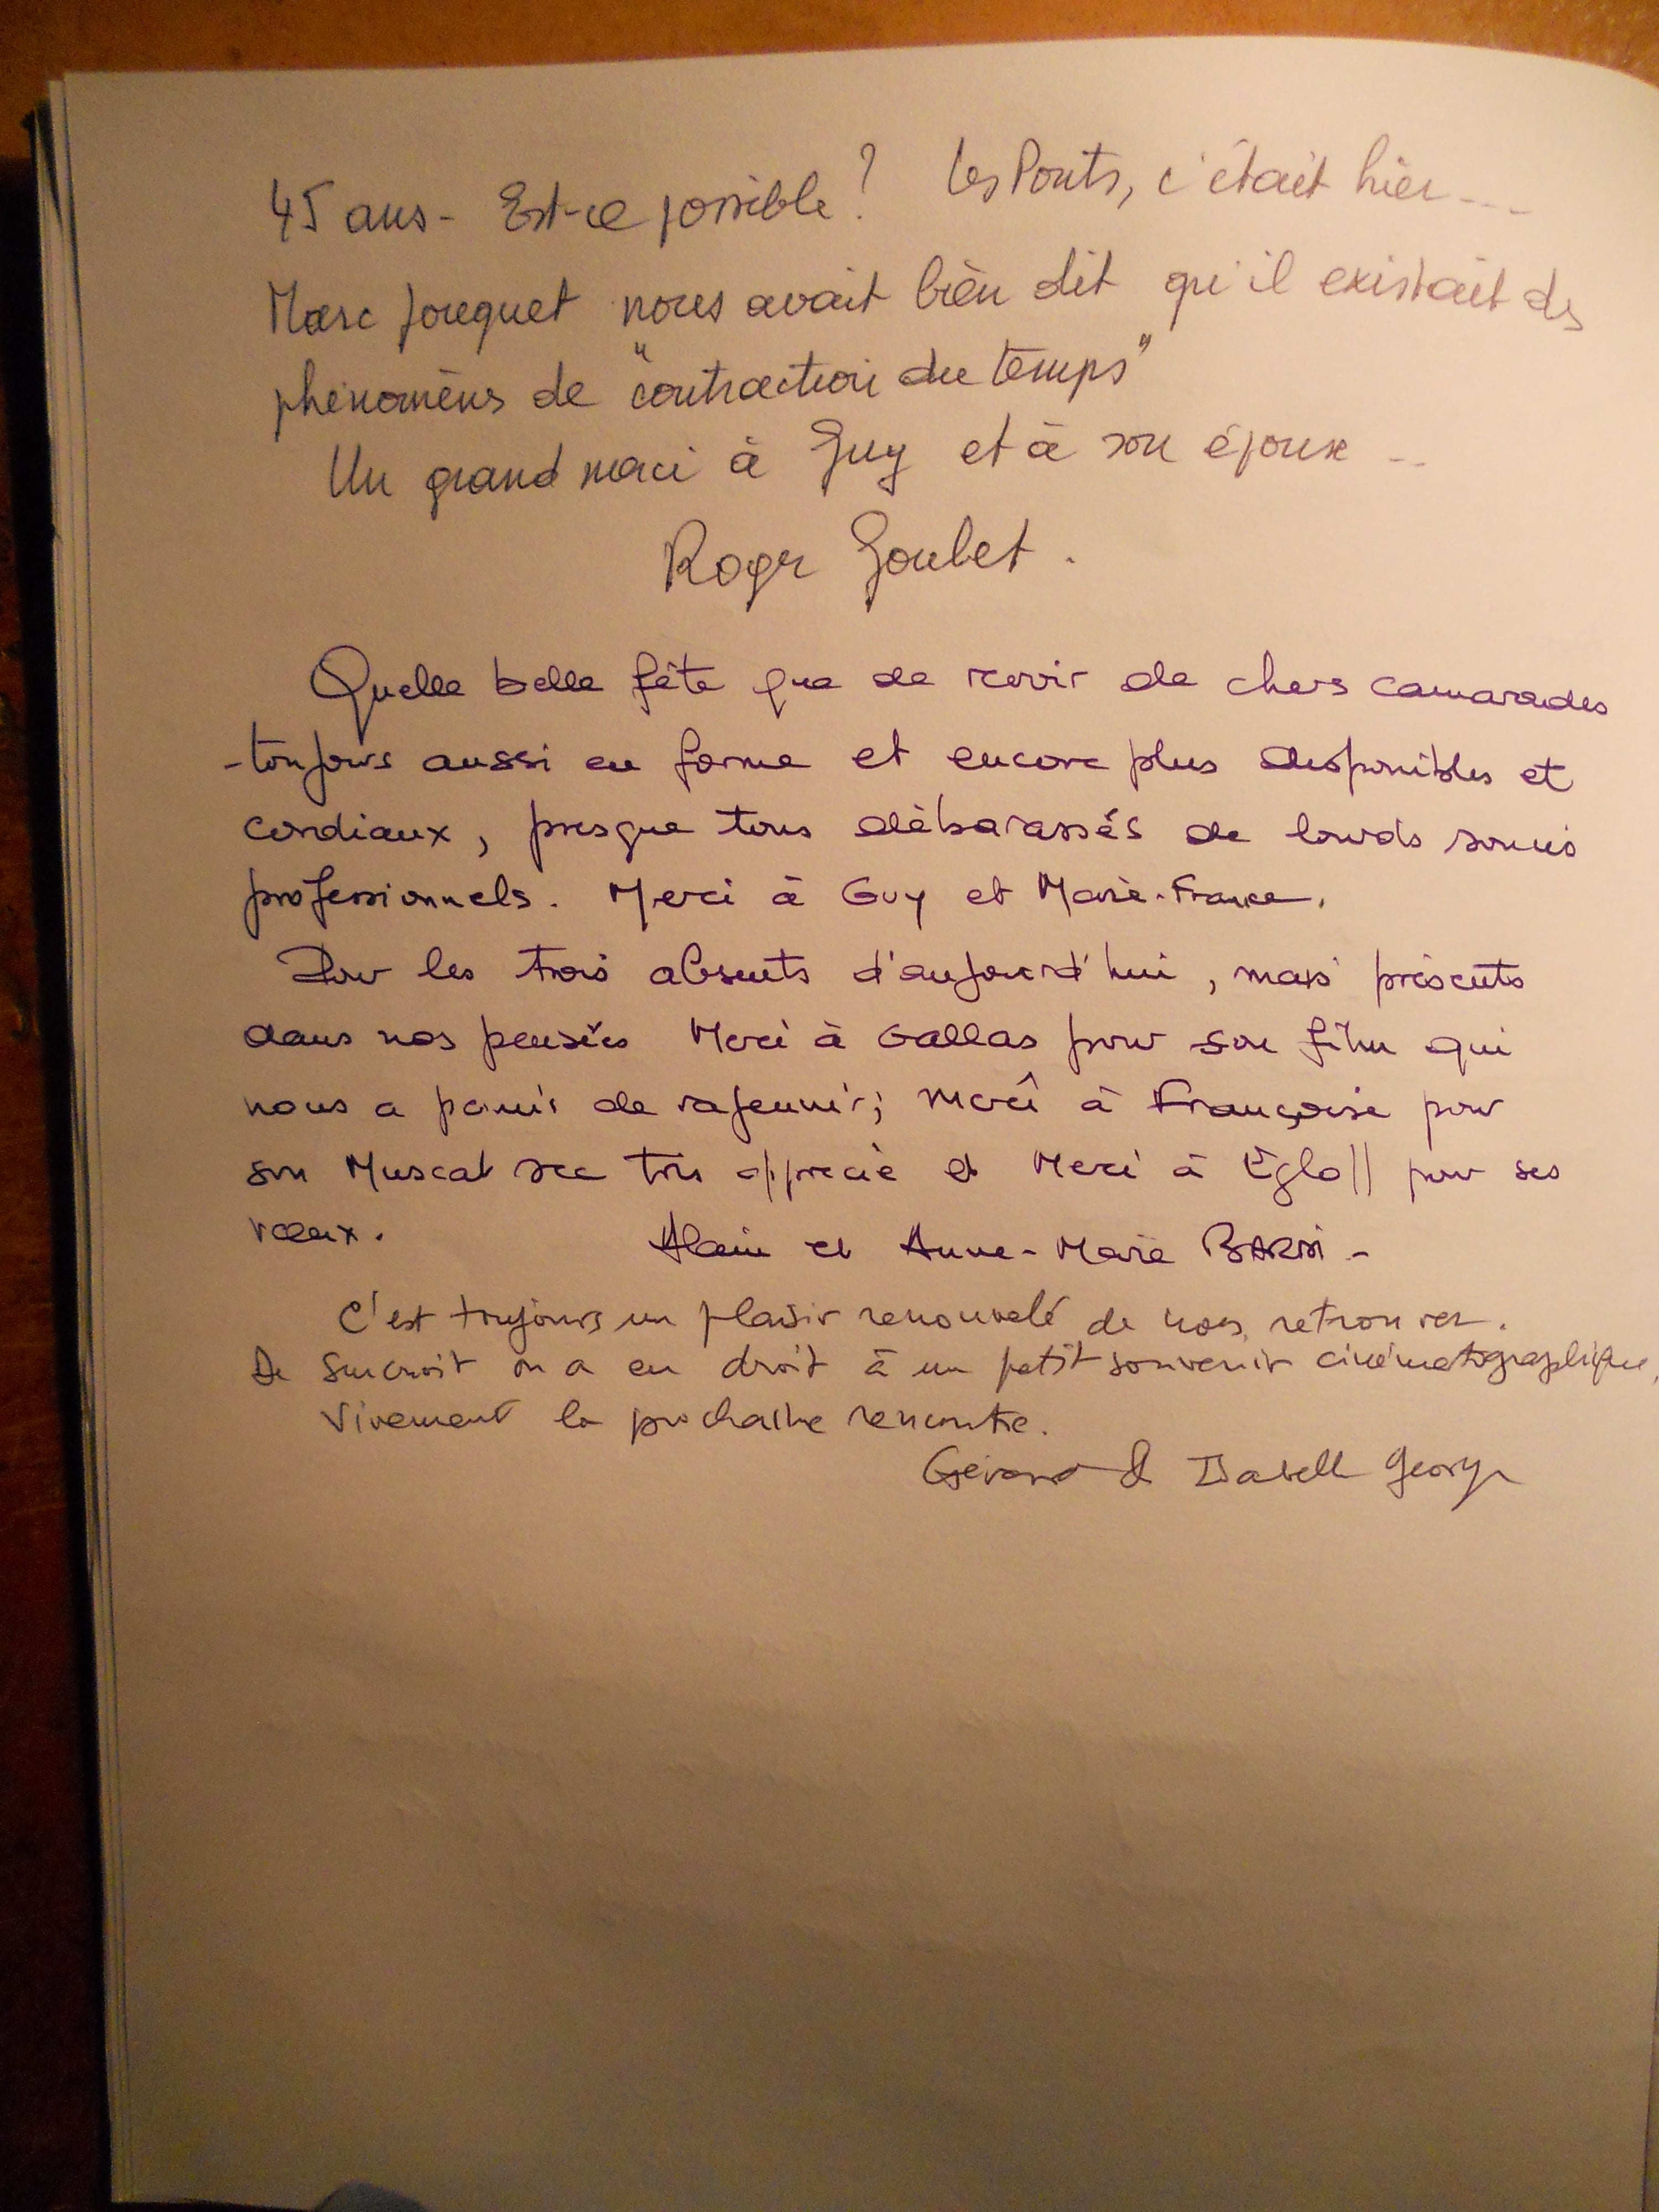 45 ans - Est-ce possible ? Les Ponts, c'était hier ...
Marc Jouguet nous avait bien dit qu'il existait des
phénomènes de "contraction du temps"
Un grand merci à Guy et à son épouse ..
Roger Goulet .
Quelle belle fête que de revoir de chers camarades
toujours aussi en forme et encore plus disponibles et
cordiaux, presque tous débarassés de lourds soucis
professionnels. Merci à Guy et Marie-France.
Pour les trois absents d'aujourd'hui, mais présents
dans nos pensées Merci à Gallas pour son film qui
nous a permis de rajeunir; merci à Françoise pour
son Muscat sec très apprecié et Merci à Egloff pour ses
vœux.
Alain et Anne-Marie
C'est toujours un plaisir renouvelé de nous retrouver.
De surcroit on a eu droit à un petit souvenir cinématographique.
Vivement la prochaine rencontre.
Gérard & Isabelle George